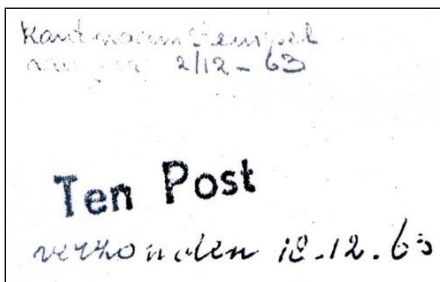 Kantnaamstempel
2/12-63
Ten Post
verzonden 18.12.63